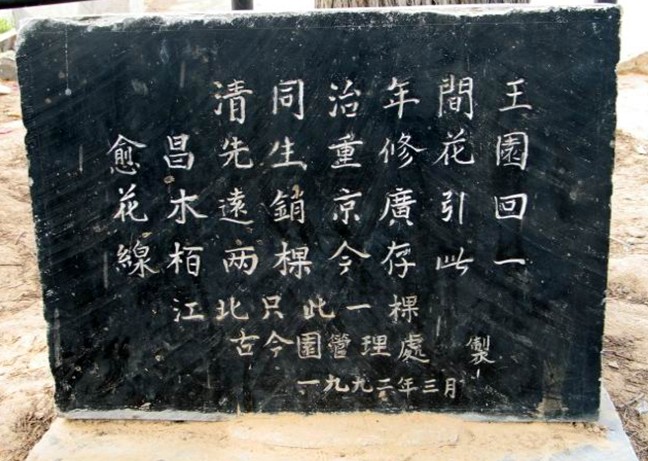 清同治年間王
愈昌先生重修花園
花木遠銷京廣引回
線柏两棵今存此一
江北只此一棵
古今園管理處 製
一九九二年三月